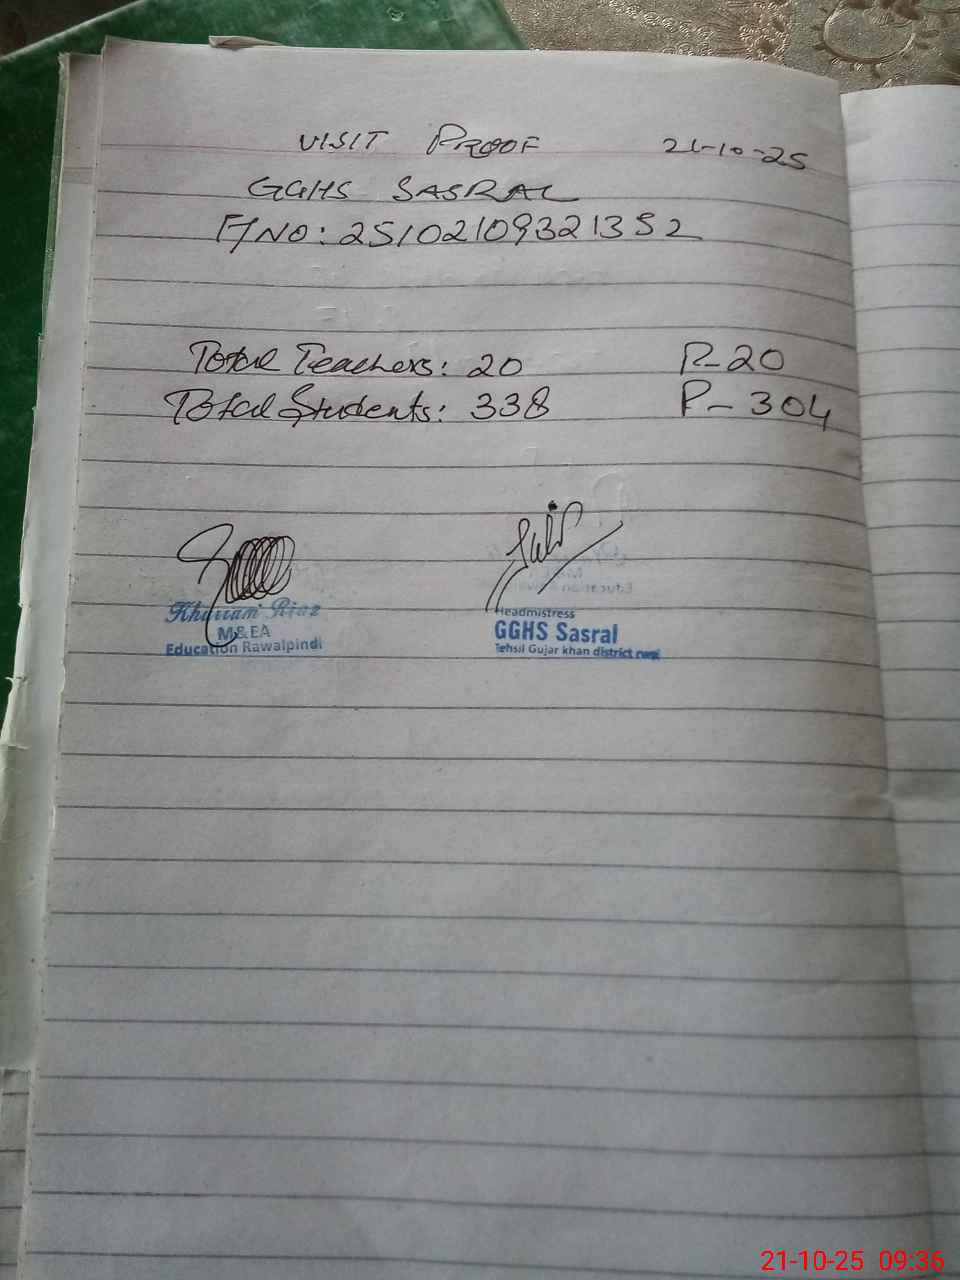 VISIT PROOF 21-10-25
GGHS SASRAL
F/NO: 25102109321352
Total Teachers: 20 P-20
Total Students: 338 P-304
Khurram Riaz
M&EA
Education Rawalpindi
Headmistress
GGHS Sasral
Tehsil Gujar khan district rwp
21-10-25 09:36